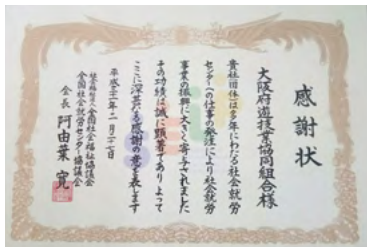 感謝状
大阪府遊技業協同組合様
貴社(団体)は多年にわたる社会就労
センターへの仕事の発注により社会就労
事業の振興に大きく寄与されました
その功績は誠に顕著でありよって
ここに深甚なる感謝の意を表します
平成二十一年二月二十七日
社会福祉法人全国社会福祉協議会
全国社会就労センター協議会
会長 阿由葉 寛